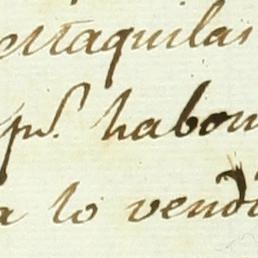 estaquilas
ps. habon
a lo vendi